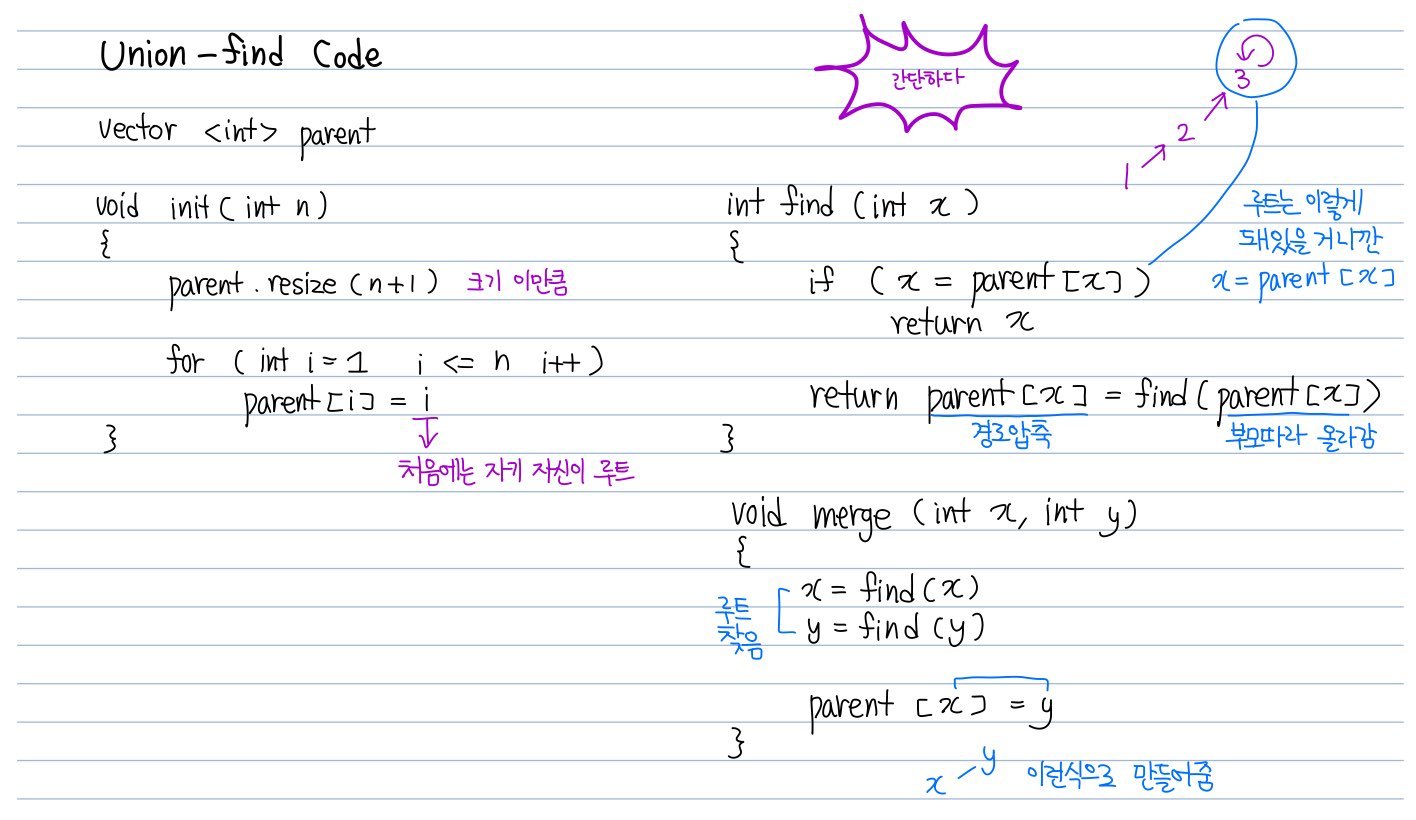 Union-find Code
vector <int> parent
void init(int n)
{
parent.resize(n+1) 크기 이만큼
for (int i=1 i <= n i++)
parent[i] = i
}
처음에는 자키 자신이 루트
간단하다
3
2
1
int find (int x)
{
if (x = parent[x])
return x
루트는 이렇게
돼있을거니깐
x = parent[x]
return parent[x] = find(parent[x])
경로압축 부모따라 올라감
}
void merge (int x, int y)
{
x = find(x)
y = find(y)
루트
찾음
parent [x] = y
}
x y 이런식으로 만들어줌